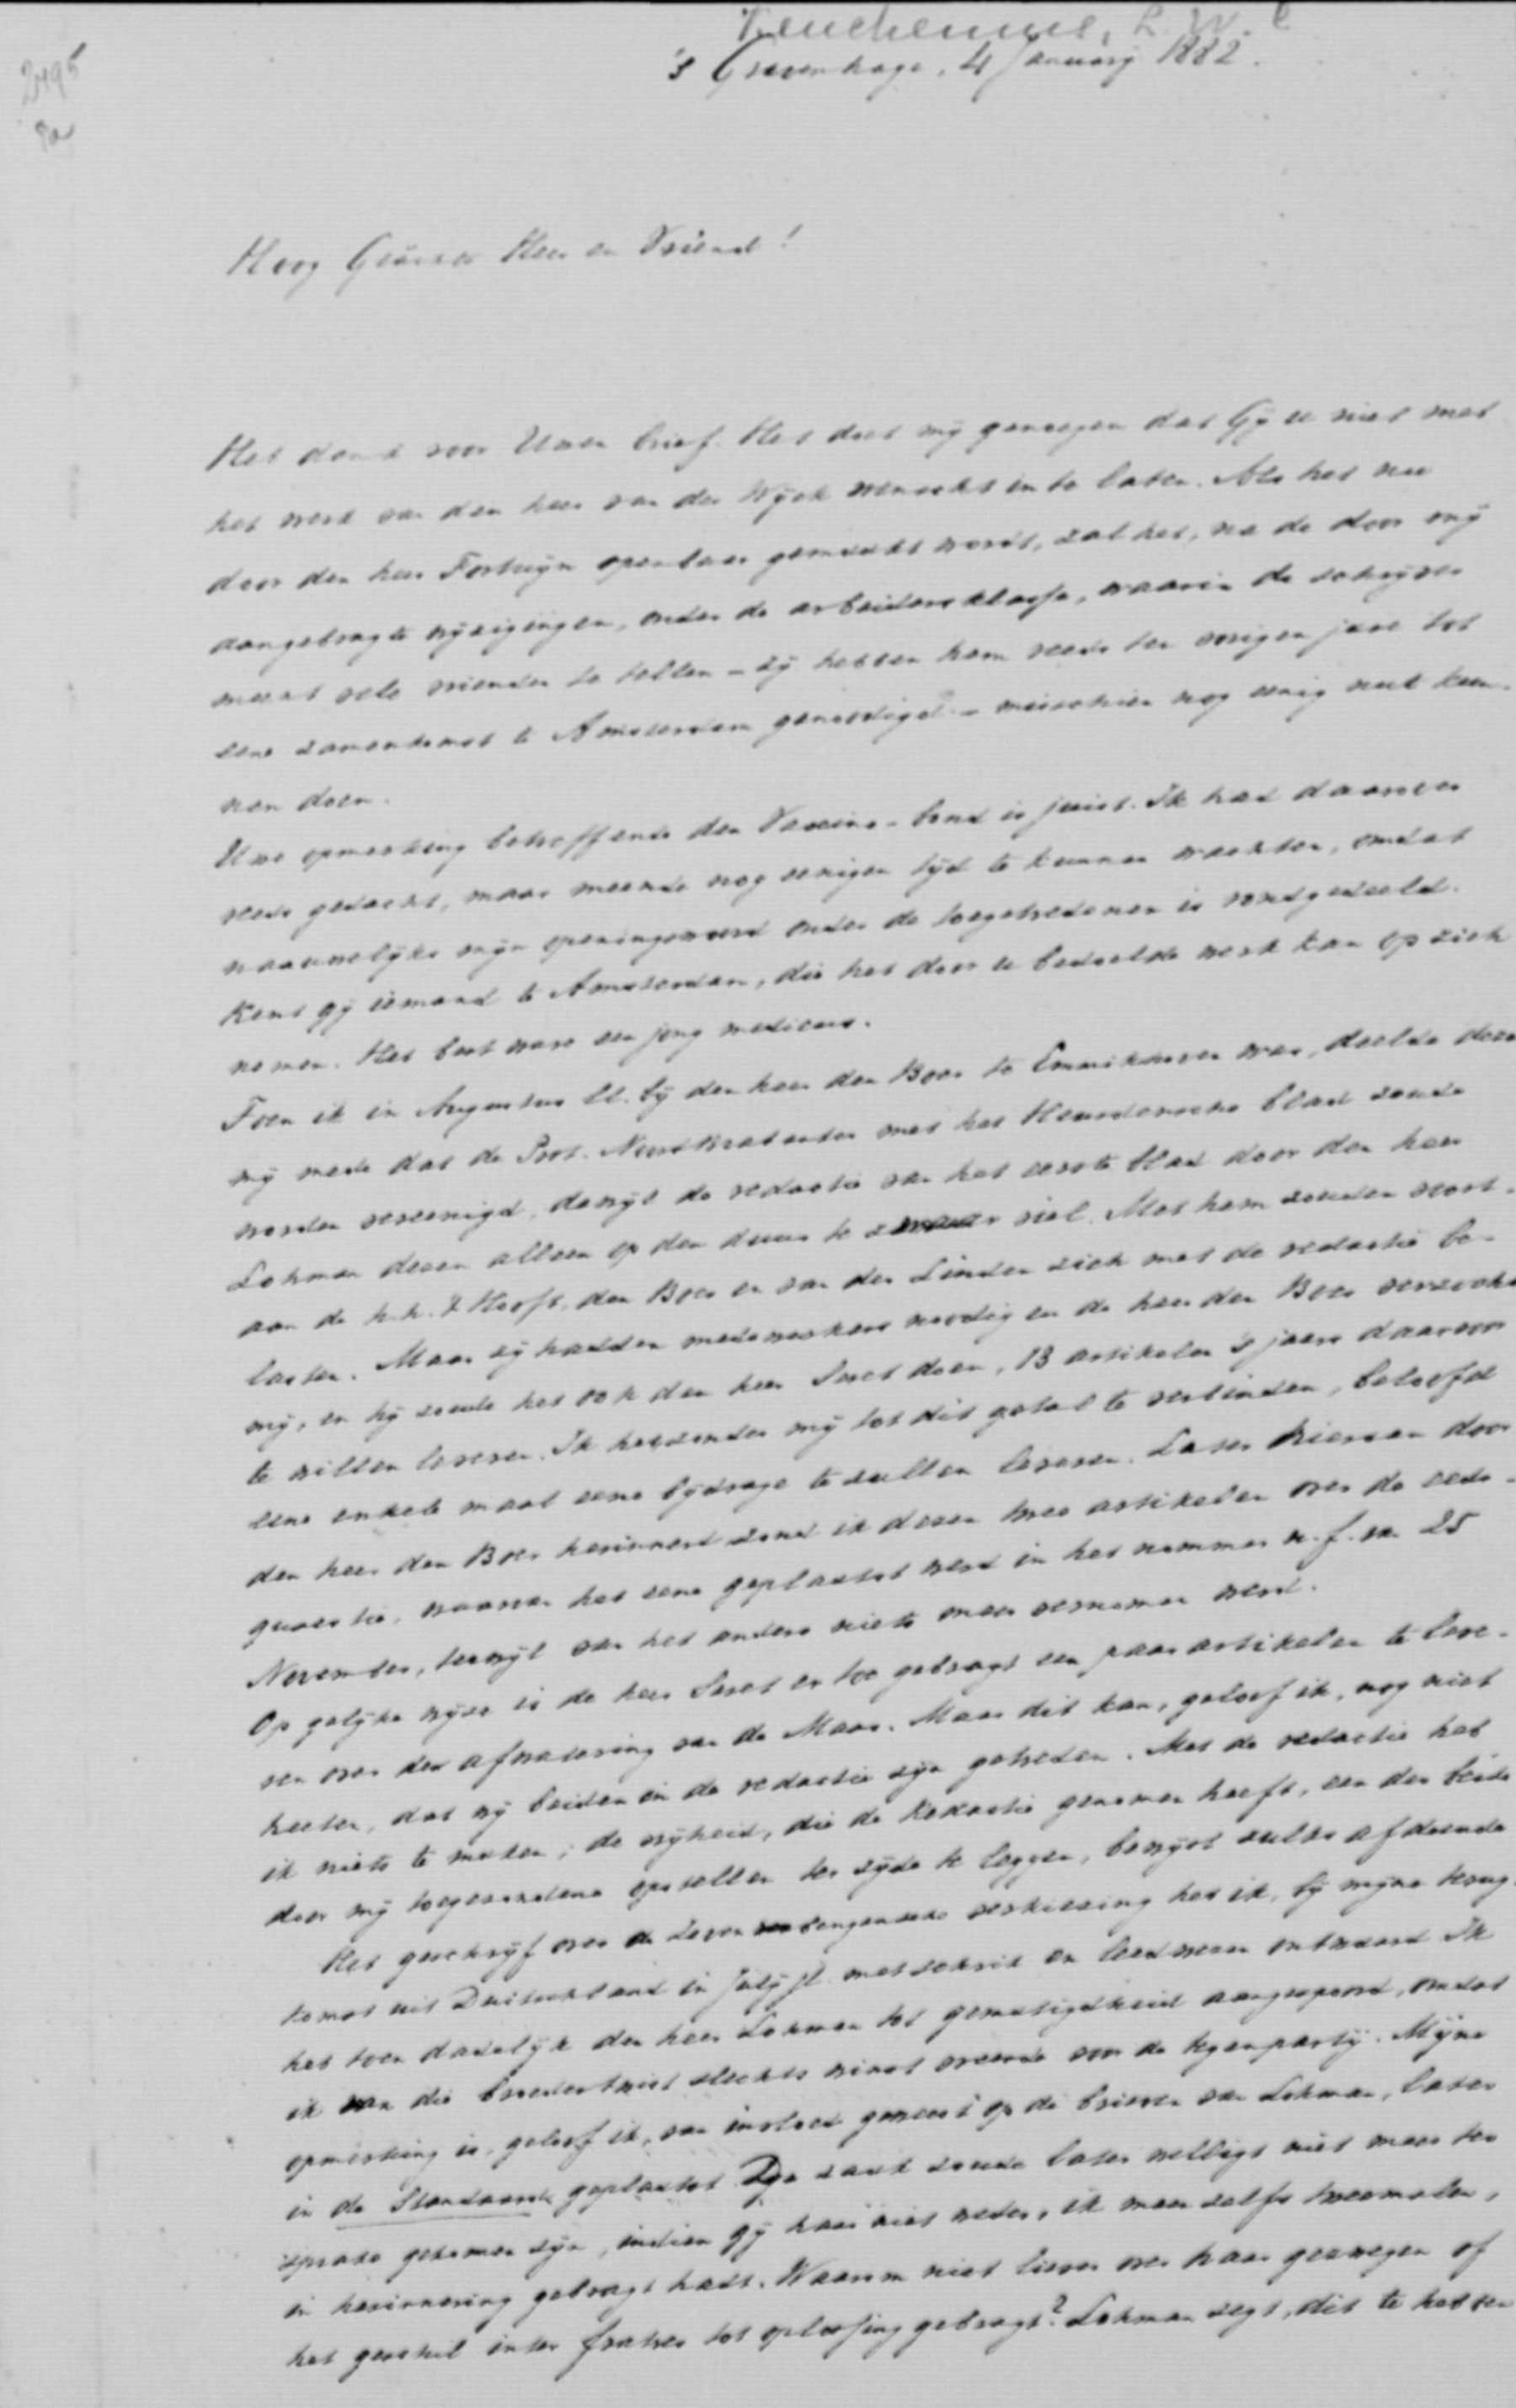 2495
9a
Keuchenius, L.W.C
's Gravenhage, 4 January 1882.
Hoog Geëerde Heer en Vriend!
Heb dank voor Uwen brief. Het doet mij genoegen dat Gij U niet met
het werk van den heer van der Wijck wenscht in te laten. Als het nu
door den heer Fortuijn openbaar gemaakt wordt, zal het, na de door mij
aangebragte wijzigingen, onder de arbeidersklasse, waarin de schrijver
meent vele vrienden te tellen – zij hebben hem reeds ten vorigen jare tot
eene zamenkomst te Amsterdam genoodigd – misschien nog eenig nut kun-
nen doen.
Uwe opmerking betreffende den Vaccine-bond is juist. Ik had daarover
reeds gedacht, maar meende nog eenigen tijd te kunnen wachten, omdat
naauwelijks mijn openingswoord onder de toegetredenen is rondgedeeld.
Kent gij iemand te Amsterdam, die het door U bedoelde werk kan op zich
nemen. Het best ware een jong medicus.
Toen ik in Augustus ll. bij den heer den Boer te Emmikhoven was, deelde deze
mij mede dat de Prot. Noordbrabanter met het Heusdensche blad zoude
worden vereenigd, dewijl de redactie van het eerste blad door den heer
Lohman dezen alleen op den duur te zwaar viel. Met hem zouden voort-
aan de h.h. 't Hooft, den Boer en van der Linden zich met de redactie be-
lasten. Maar zij hadden medewerkers noodig en de heer den Boer verzocht
mij, en hij zoude het ook den heer Seret doen, 13 artikelen 's jaars daarvoor
te willen leveren. Ik heb zonder mij tot dit getal te verbinden, beloofd
eene enkele maal eene bijdrage te zullen leveren. Later hieraan door
den heer den Boer herinnerd zond ik dezen twee artikelen over de eeds-
quaestie, waarvan het eene geplaatst werd in het nommer n.f. van 25
November, terwijl van het andere niets meer vernomen werd.
Op gelijke wijze is de heer Seret er toe gebragt een paar artikelen te leve-
ren over den afwatering van de Maas. Maar dit kan, geloof ik, nog niet
heeten, dat wij beiden in de redactie zijn getreden. Met de redactie heb
ik niets te maken; de vrijheid, die de Redactie genomen heeft, een der beide
door mij toegezondene opstellen ter zijde te leggen, bewijst zulks afdoende
Het geschrijf over de Zevenbergensche verkiezing heb ik, bij mijne terug-
komst uit Duitschland in July jl. met schrik en leedwezen ontwaard. Ik
heb toen dadelijk den heer Lohman tot gematigdheid aangespoord, omdat
ik van die broedertwist slechts winst vreesde voor de tegenpartij. Mijne
opmerking is, geloof ik, van invloed geweest op de brieven van Lohman, later
in de Standaard geplaatst. De zaak zoude later welligt niet meer ter
sprake gekomen zijn, indien gij haar niet weder, ik meen zelfs tweemalen,
in herinnering gebragt hadt. Waarom niet liever over haar gezwegen of
het geschil inter fratres tot oplossing gebragt? Lohman zegt, dit te hebben